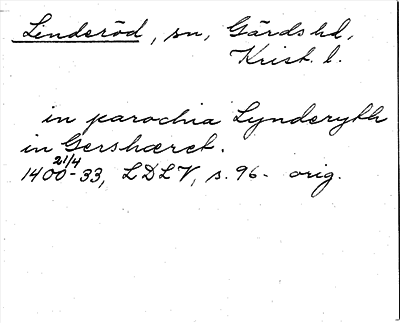 Linderöd, sn, Gärds hd,
Krist. l.
in parochia Lynderydh
in Gershæret.
21/4
1400-33, LDLV, s. 96. orig.